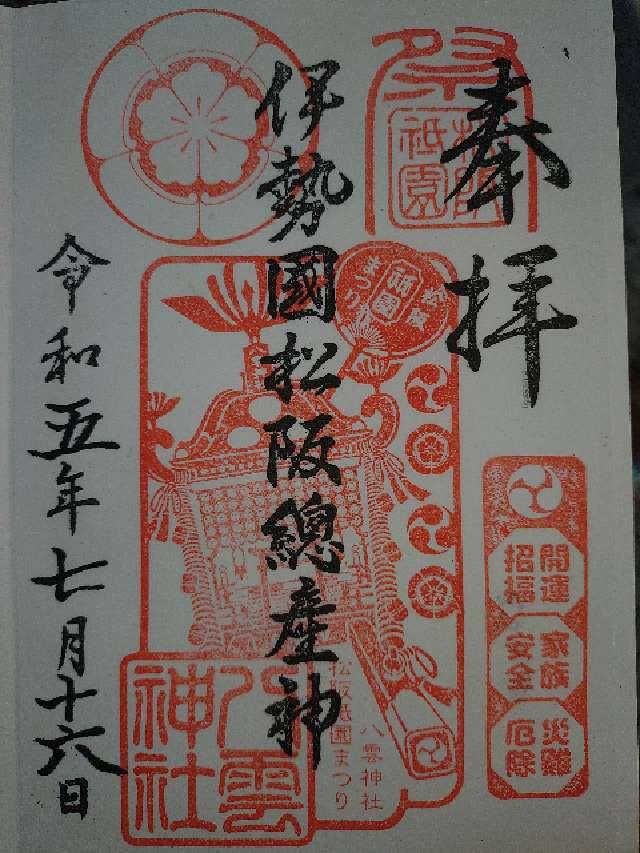 奉拝
祭
松阪
祇園
伊勢國松阪總産神
松阪
祇園
まつり
開運
招福
家族
安全
災難
厄除
八雲神社
松阪祇園まつり
八雲
神社
令和五年七月十六日